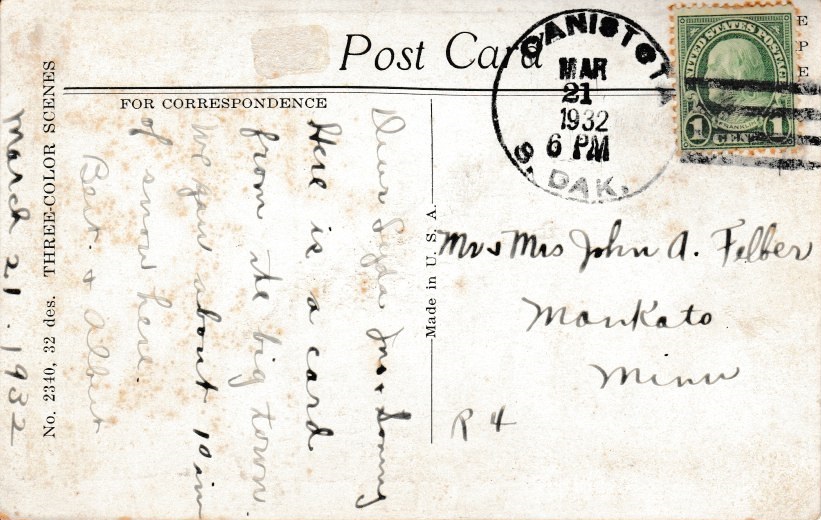 Post Card
CANISTOTA
MAR
21
1932
6 PM
S. DAK.
UNITED STATES POSTAGE
1 CENT 1
E
P
E
FOR CORRESPONDENCE
Dear
Here is a card
from the big town.
We have about 10 in
of snow here.
Bert & Albert
March 21. 1932
No. 2340, 32 des. THREE-COLOR SCENES
Made in U. S. A.
Mr & Mrs John A. Felber
Mankato
Minn
R 4